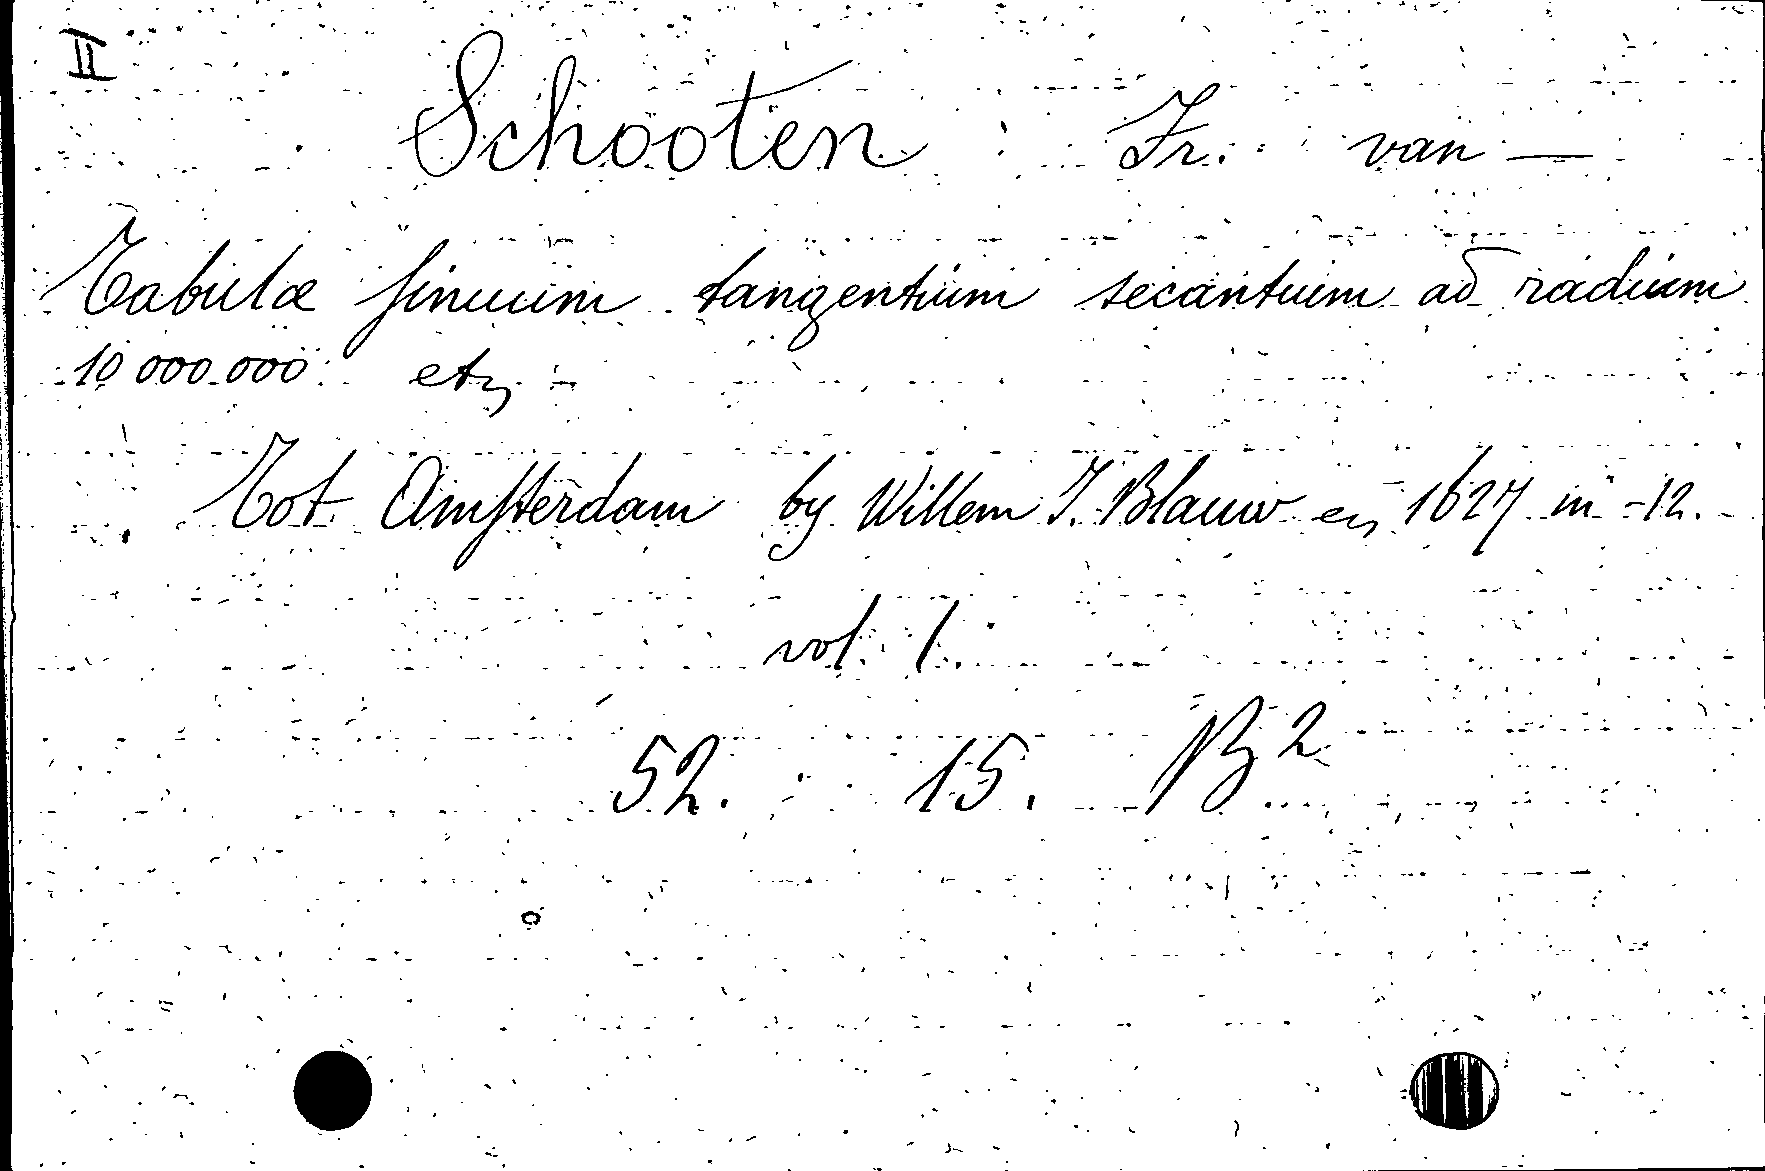 II
Schooten Fr. van —
Tabulæ sinuum tangentium secantium ad radium
10 000 000 etc
Tot Amsterdam by Willem J. Blauw en 1627 in -12.
vol. 1.
52. 15. B²